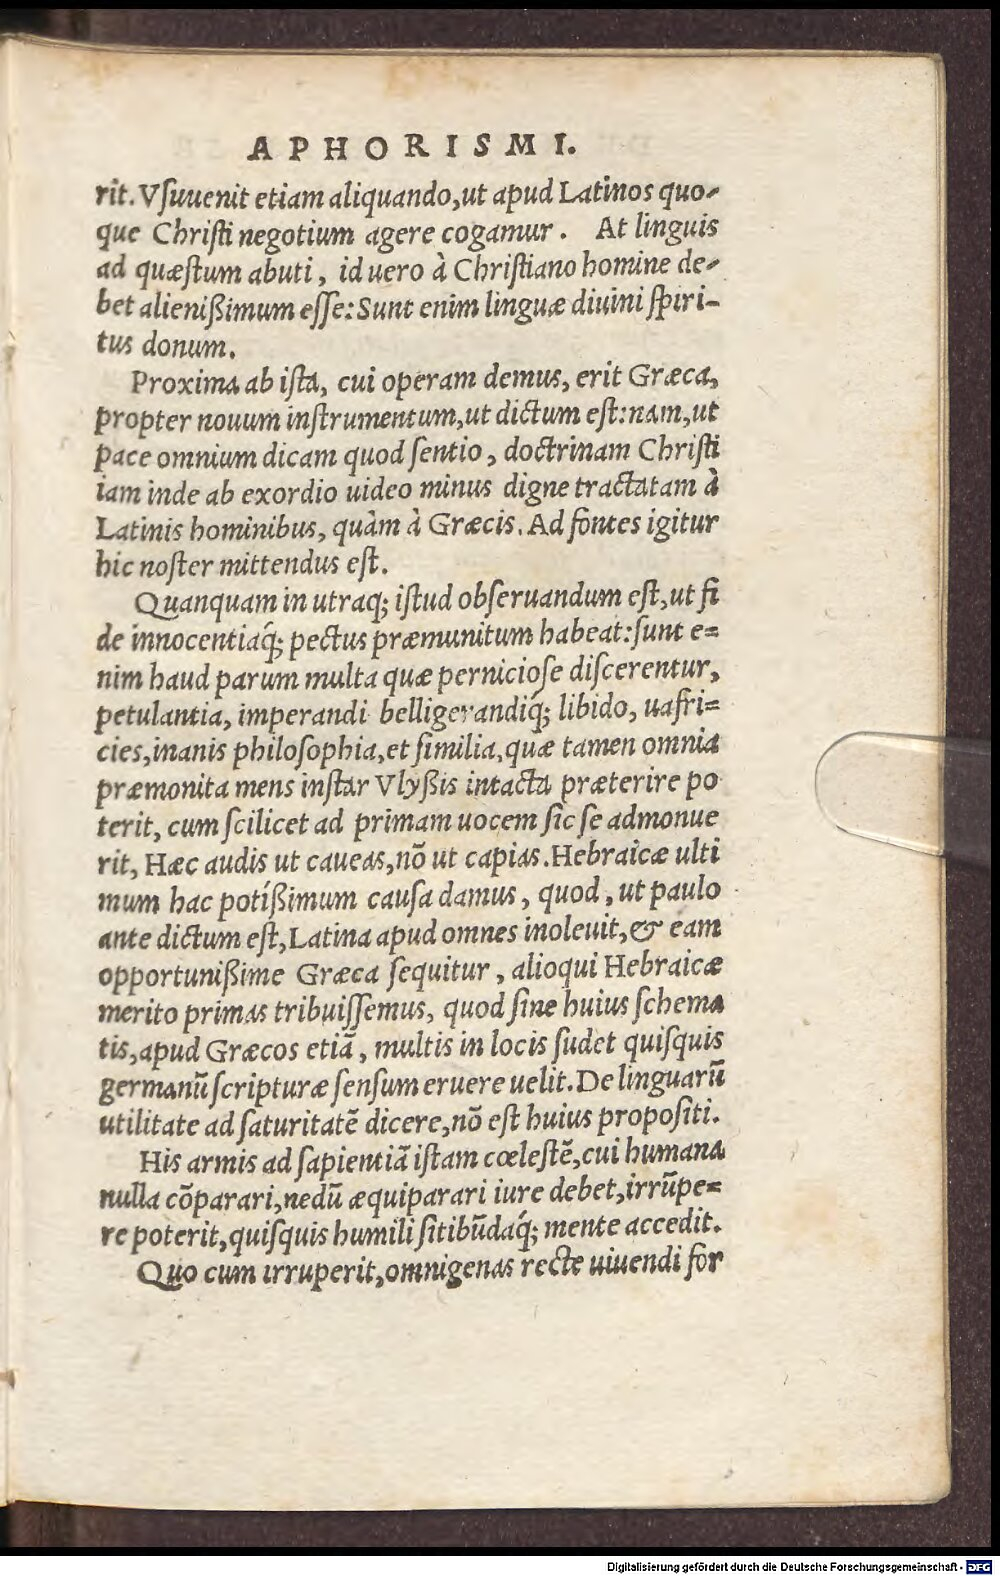 APHORISMI I.
rit. Vſuuenit etiam aliquando, ut apud Latinos quo-
que Chriſti negotium agere cogamur. At linguis
ad quæſtum abuti, id uero à Chriſtiano homine de-
bet alienißimum eſſe: Sunt enim linguæ diuini ſpiri-
tus donum.
Proxima ab iſta, cui operam demus, erit Græca,
propter nouum inſtrumentum, ut dictum eſt: nam, ut
pace omnium dicam quod ſentio, doctrinam Chriſti
iam inde ab exordio uideo minus digne tractatam à
Latinis hominibus, quàm à Græcis. Ad fontes igitur
hic noſter mittendus eſt.
Quanquam in utraq; iſtud obſeruandum eſt, ut fi
de innocentiaq́; pectus præmunitum habeat: ſunt e=
nim haud parum multa quæ pernicioſe diſcerentur,
petulantia, imperandi belligerandiq́; libido, uafri=
cies, inanis philoſophia, et ſimilia, quæ tamen omnia
præmonita mens inſtar Vlyßis intacta præterire po
terit, cum ſcilicet ad primam uocem ſic ſe admonue
rit, Hæc audis ut caueas, nõ ut capias. Hebraicæ ulti
mum hac potißimum cauſa damus, quod, ut paulo
ante dictum eſt, Latina apud omnes inoleuit, & eam
opportunißime Græca ſequitur, alioqui Hebraicæ
merito primas tribuiſſemus, quod ſine huius ſchema
tis, apud Græcos etiã, multis in locis ſudet quiſquis
germanũ ſcripturæ ſenſum eruere uelit. De linguarũ
utilitate ad ſaturitatẽ dicere, nõ eſt huius propoſiti.
His armis ad ſapientiã iſtam cœleſtẽ, cui humana
nulla cõparari, nedũ æquiparari iure debet, irrũpe=
re poterit, quiſquis humili ſitibũdaq́; mente accedit.
Quo cum irruperit, omnigenas recte uiuendi for
Digitalisierung gefördert durch die Deutsche Forschungsgemeinschaft - DFG